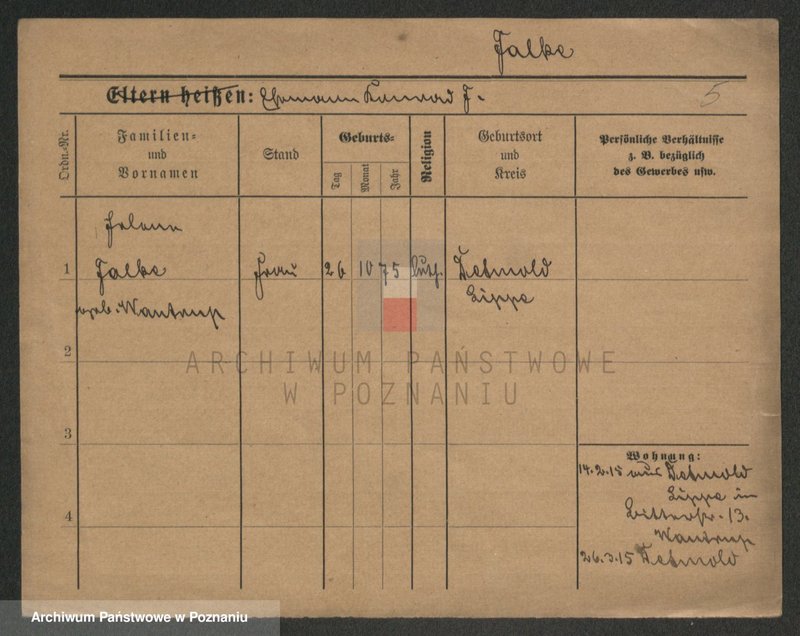 Falke
Eltern heißen: Ehemann Konrad F.
5
Ordn.-Nr.
Familien-
und
Vornamen
Stand
Geburts-
Tag
Monat
Jahr
Religion
Geburtsort
und
Kreis
Persönliche Verhältnisse
z. B. bezüglich
des Gewerbes usw.
Helene
1 Falke Frau 26 10 75 luth. Detmold
geb. Wantrup Lippe
2
ARCHIWUM PAŃSTWOWE
W POZNANIU
3
Wohnung:
14.2.15 aus Detmold
Lippe in
Ritterstr. 13.
Wantrup
4
26.3.15 Detmold
Archiwum Państwowe w Poznaniu